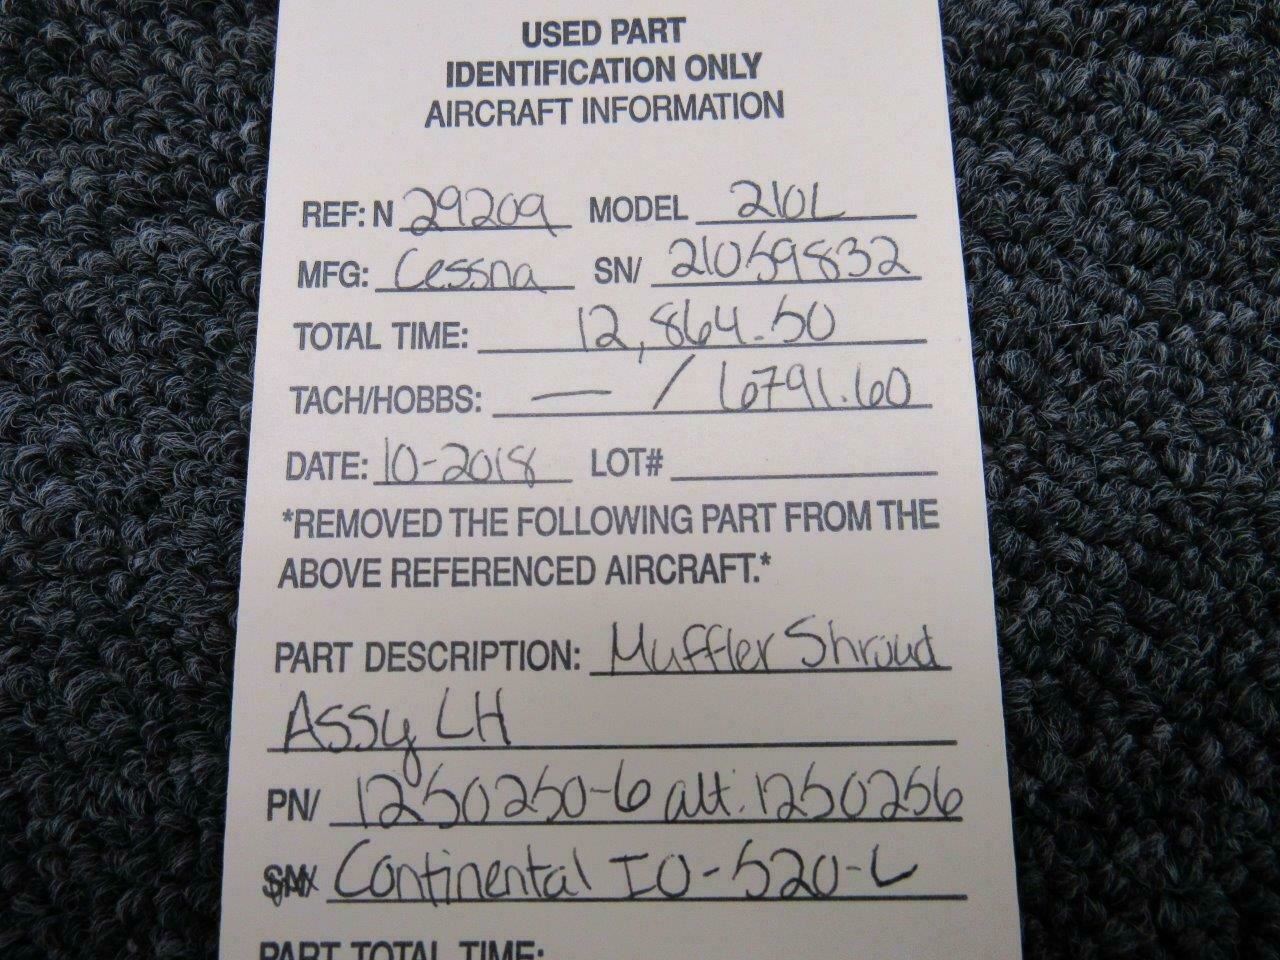 USED PART
IDENTIFICATION ONLY
AIRCRAFT INFORMATION
REF: N 29209 MODEL 210L
MFG: Cessna SN/ 21059832
TOTAL TIME: 12,864.50
TACH/HOBBS: — / 6791.60
DATE: 10-2018 LOT#
*REMOVED THE FOLLOWING PART FROM THE
ABOVE REFERENCED AIRCRAFT.*
PART DESCRIPTION: Muffler Shroud
Assy LH
PN/ 1250250-6 alt. 1250256
SN/ Continental IO-520-L
PART TOTAL TIME: